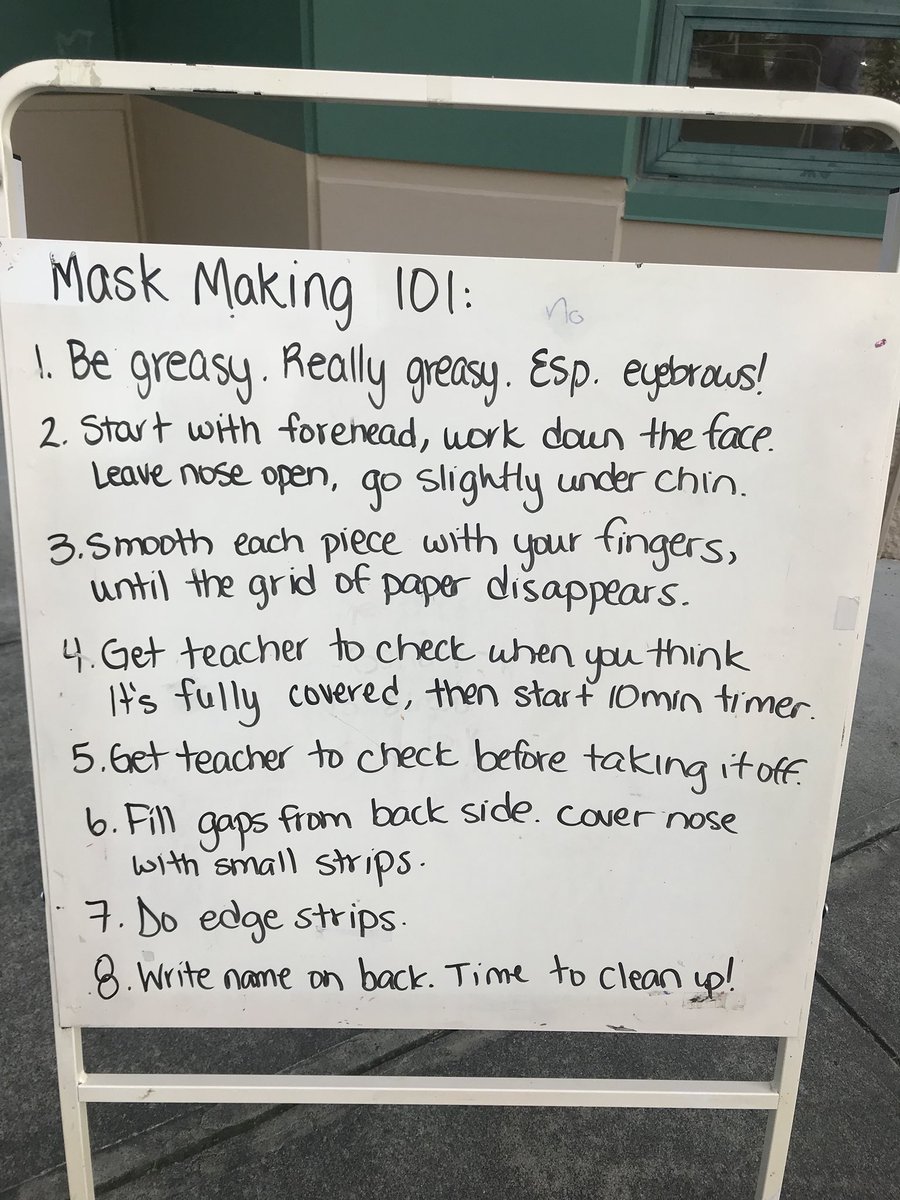 Mask Making 101:
no
1. Be greasy. Really greasy. Esp. eyebrows!
2. Start with forehead, work down the face.
Leave nose open, go slightly under chin.
3. Smooth each piece with your fingers,
until the grid of paper disappears.
4. Get teacher to check when you think
It's fully covered, then start 10 min timer.
5. Get teacher to check before taking it off.
6. Fill gaps from back side. cover nose
with small strips.
7. Do edge strips.
8. Write name on back. Time to clean up!